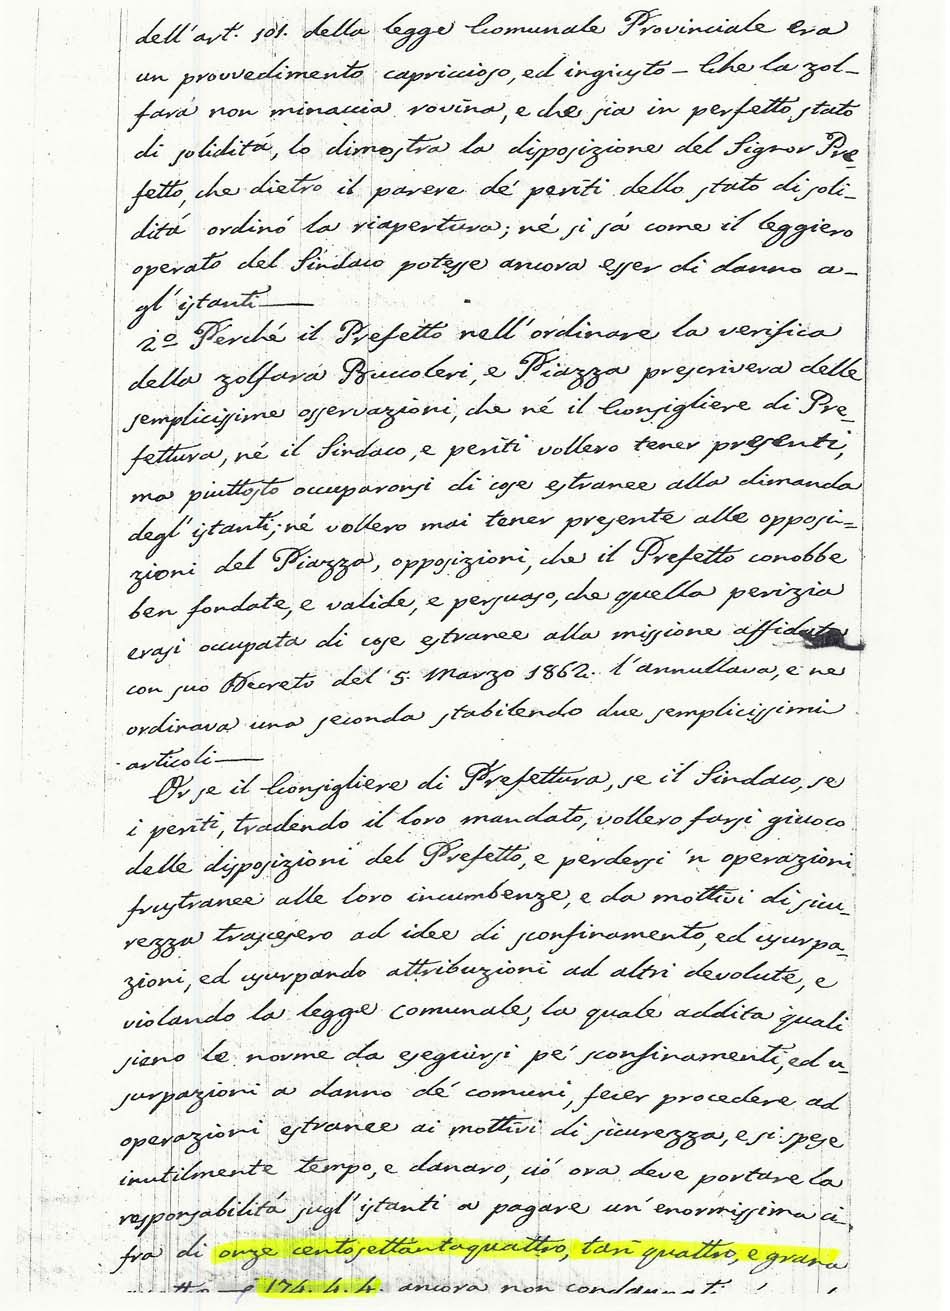 dell'art. 101. della legge Comunale Provinciale era
un provvedimento capriccioso, ed ingiusto – Che la zol-
fara non minaccia rovina, e che sia in perfetto stato
di soliditá, lo dimostra la disposizione del Signor Pre-
fetto, che dietro il parere de' periti dello stato di soli-
ditá ordinó la riapertura; né si sá come il leggiero
operato del Sindaco potesse ancora esser di danno a-
gl'istanti —
2º Perché il Prefetto nell'ordinare la verifica
della zolfara Buccoleri, e Piazza prescriveva delle
semplicissime osservazioni, che né il Consigliere di Pre-
fettura, né il Sindaco, e periti vollero tener presenti,
ma piuttosto occuparonsi di cose estranee alla dimanda
degl'istanti; né vollero mai tener presente alle opposi=
zioni del Piazza, opposizioni, che il Prefetto conobbe
ben fondate, e valide, e persuaso, che quella perizia
erasi occupata di cose estranee alla missione affidata
con suo Decreto del 5. Marzo 1862. l'annullava, e ne
ordinava una seconda stabilendo due semplicissimi
articoli —
Or se il Consigliere di Prefettura, se il Sindaco, se
i periti, tradendo il loro mandato, vollero farsi giuoco
delle disposizioni del Prefetto, e perdersi 'n operazioni
frustranee alle loro incumbenze, e da mottivi di sicu-
rezza trascesero ad idee di sconfinamento, ed usurpa-
zioni, ed usurpando attribuzioni ad altri devolute, e
violando la legge comunale, la quale addita quali
sieno le norme da eseguirsi pe' sconfinamenti, ed u-
surpazioni a danno de' comuni, fecer procedere ad
operazioni estranee ai mottivi di sicurezza, e si spese
inutilmente tempo, e danaro, ció ora deve portare la
responsabilitá sugl'istanti a pagare un'enormissima ci-
fra di onze centosettantaquattro, tarì quattro, e grana
174. 4. 4. ancora non